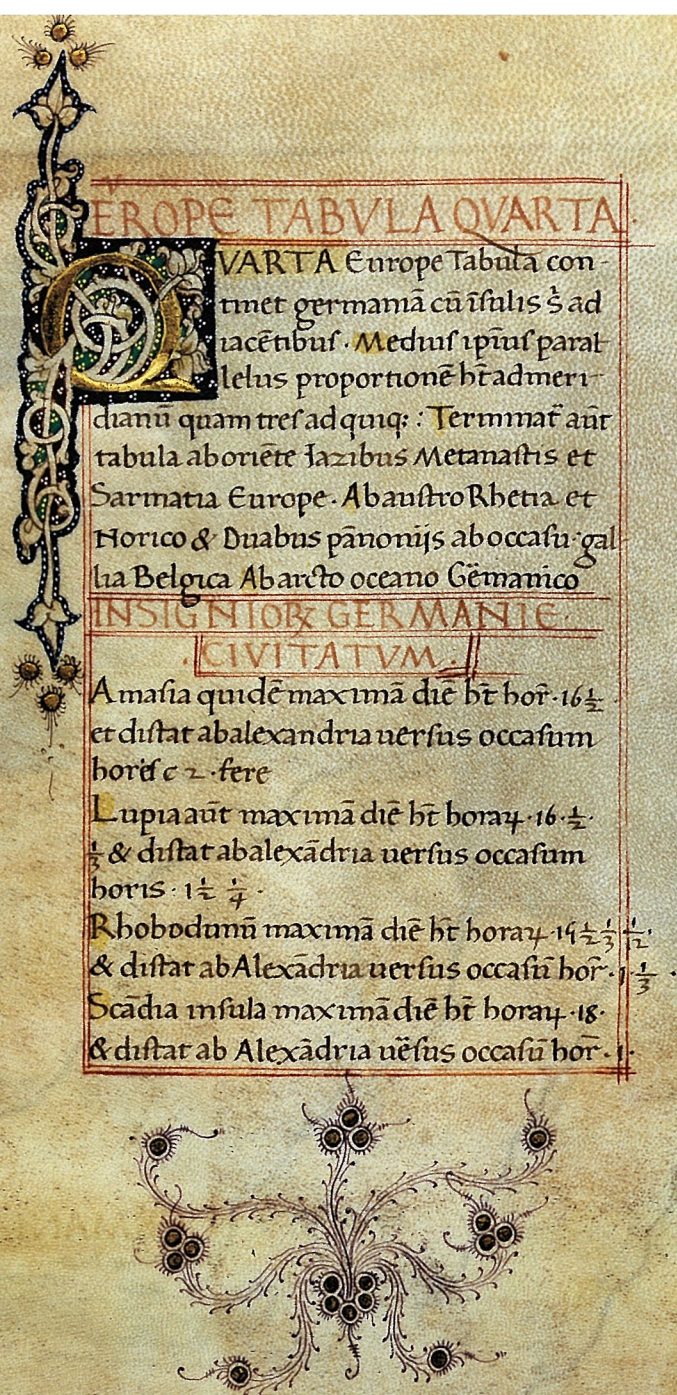 EROPE TABVLA QVARTA
QVARTA Europe Tabula con-
tinet germaniā cū īsulis s̄ ad
iacētibus. Medius ip̄ius paral
lelus proportionē hēt ad meri-
dianū quam tres ad quiq;: Terminat̄ aūt
tabula ab oriēte Iazibus Metanastis et
Sarmatia Europe. Ab austro Rhetia et
Norico & Duabus pānoniis ab occasu gal
lia Belgica Ab arcto oceano Gēmanico
INSIGNIOꝜ GERMANIE.
.CIVITATVM.
Amasia quidē maximā diē ht̄ hor̄. 16 ½
et distat ab alexandria uersus occasum
horis 2. fere
Lupia aūt maximā diē ht̄ horaꝝ. 16. ½.
⅓ & distat ab alexādria uersus occasum
horis. 1 ½ ¼.
Rhobodunū maximā diē ht̄ horaꝝ. 15 ½ ⅓ 1/12.
& distat ab Alexādria uersus occasū hor̄. 1. ⅓.
Scādia insula maximā diē ht̄ horaꝝ. 18.
& distat ab Alexādria uēsus occasū hor̄. 1.